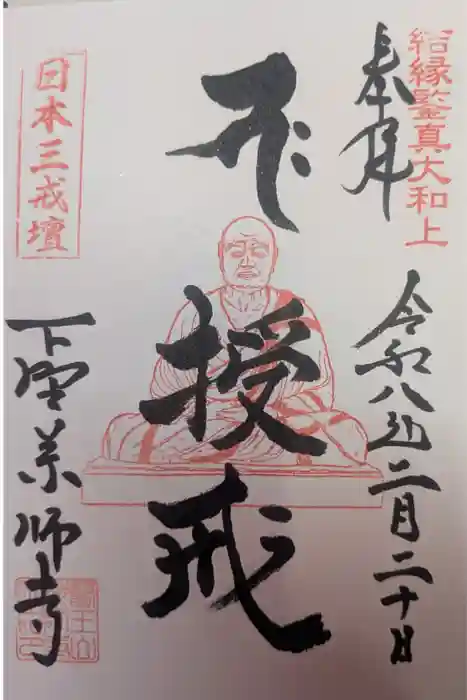 結縁鑒真大和上
奉拝
令和八年二月二十日
授戒
日本三戒壇
下野薬師寺